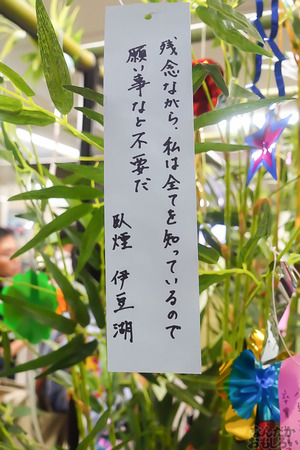 残念ながら、私は全てを知っているので
願い事など不要だ
臥煙 伊豆湖